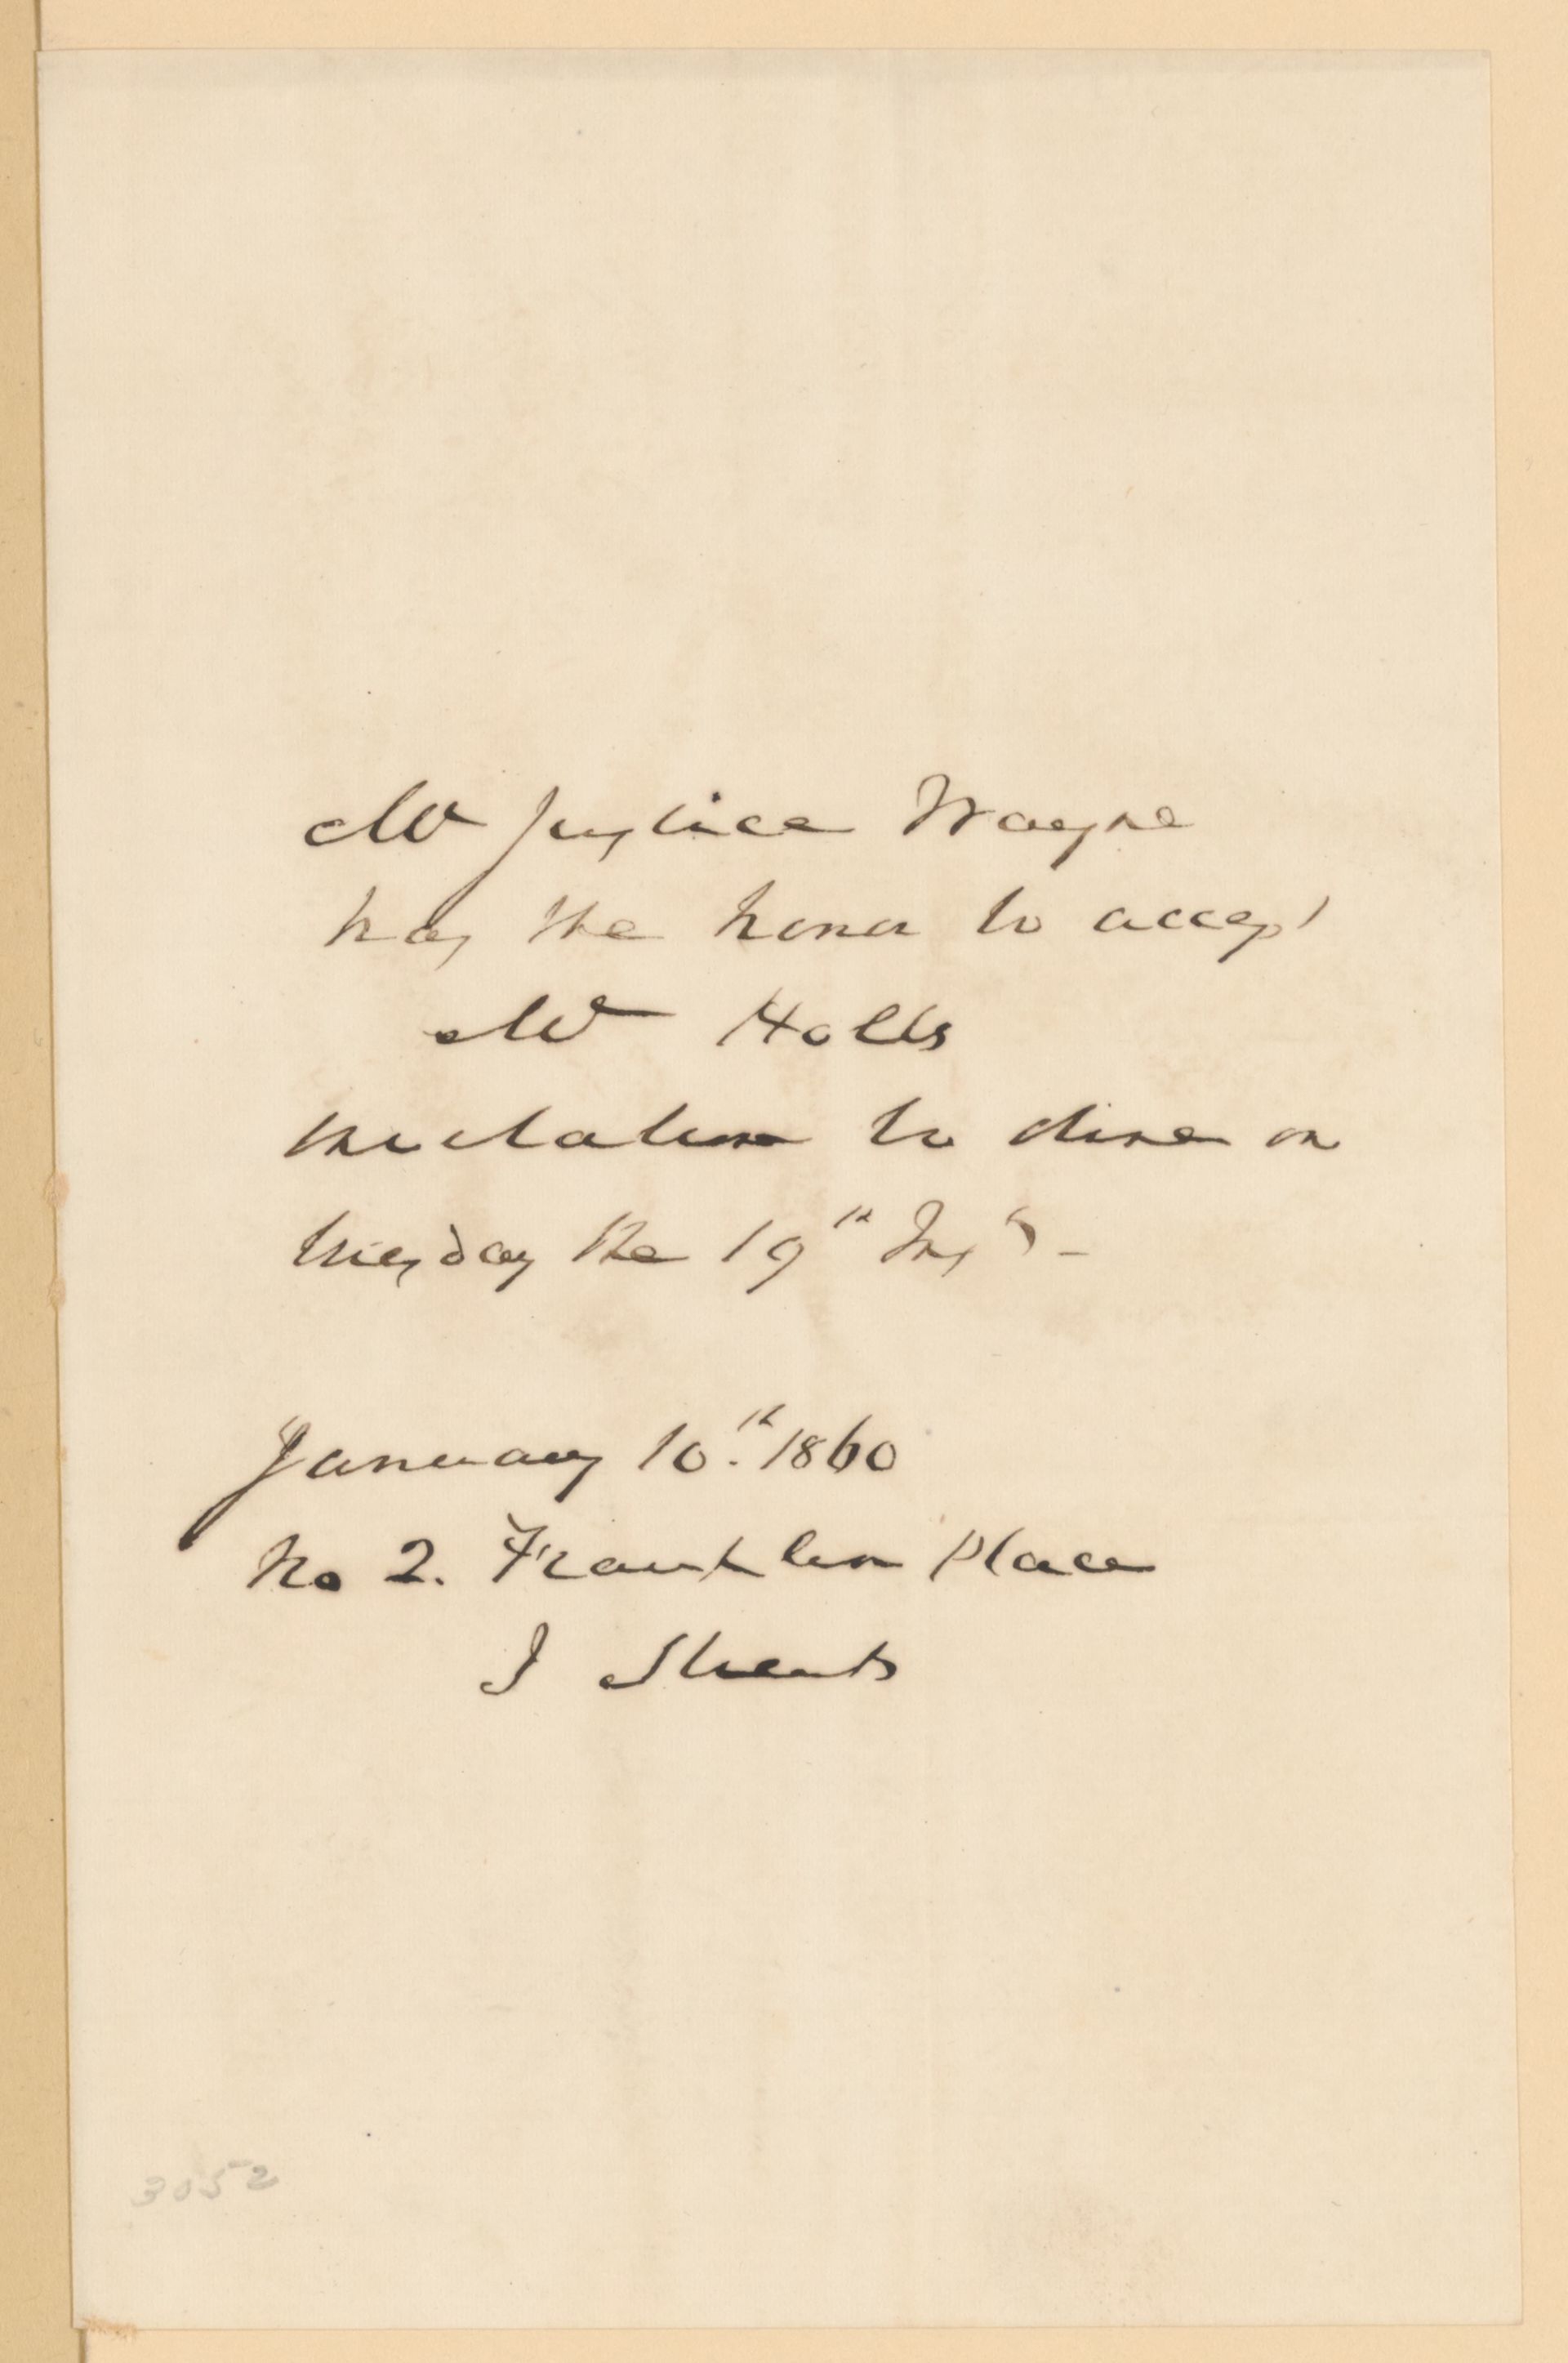 Mr Justice Wayne
has the honor to accept
Mr Holts
invitation to dine on
tuesday the 19th Inst -
January 10th. 1860
No 2. Franklin Place
I Street
3052